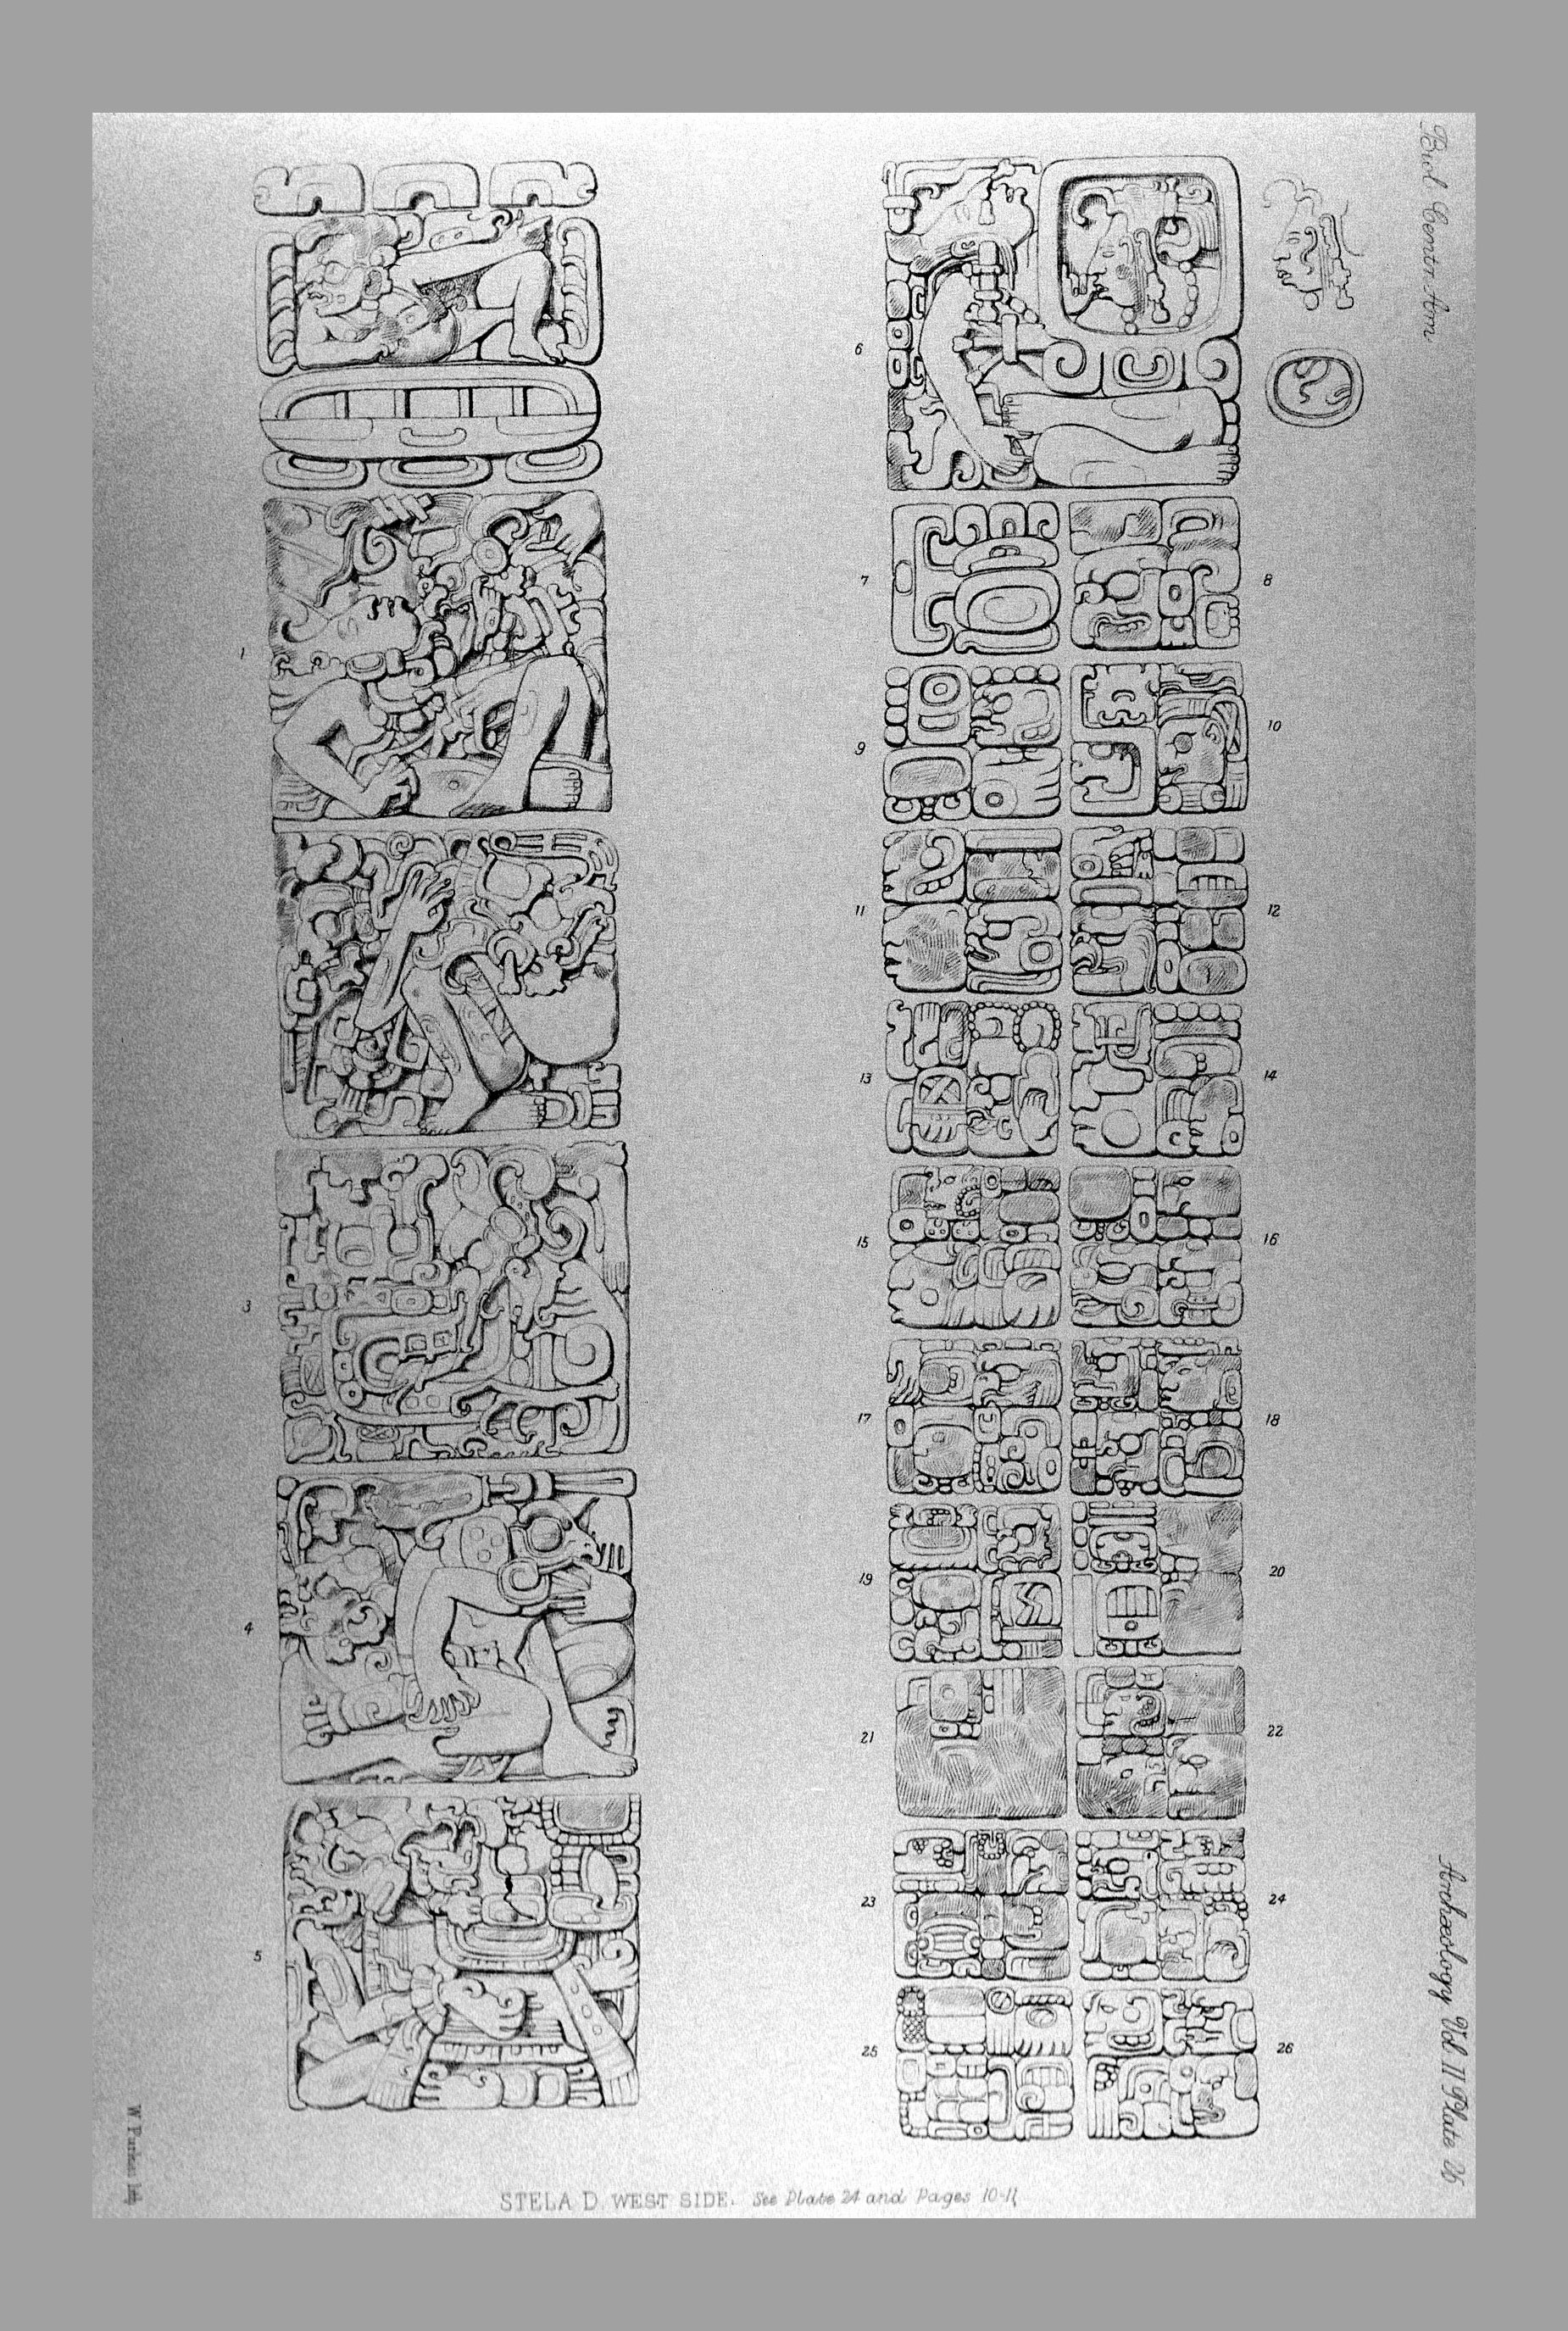 Biol. Centr. Am.
1
6
7
8
9
10
11
12
3
13
14
15
16
4
17
18
19
20
21
22
5
23
24
25
26
Archæology Vol. II Plate 26
STELA D. WEST SIDE. See Plate 24 and Pages 10-11